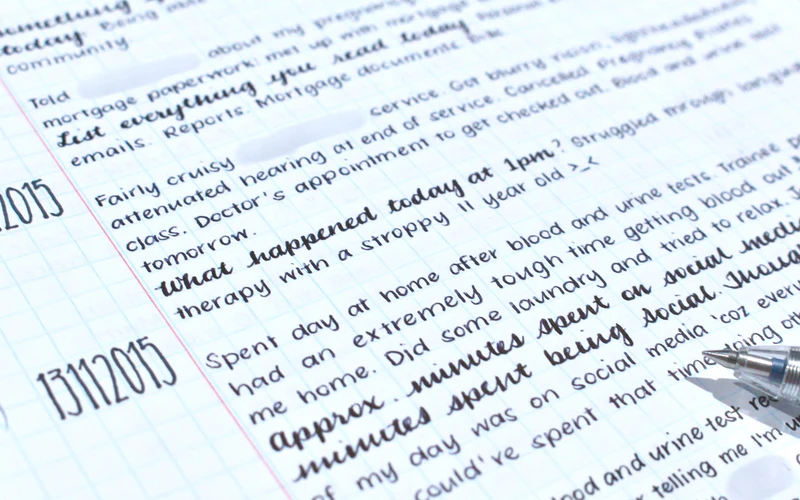 something
today. Being
community
Told about my pregnancy
mortgage paperwork; met up with mortgage
List everything you read today. Personal
emails. Reports. Mortgage documents.
2015
Fairly cruisy service. Got blurry vision, lightheadedness
attenuated hearing at end of service. Cancelled Pregnancy Pilates
class. Doctor's appointment to get checked out. Blood and urine test
tomorrow.
What happened today at 1pm? Struggled through language
therapy with a stroppy 11 year old >_<
13112015
Spent day at home after blood and urine tests. Trainee
had an extremely tough time getting blood out
me home. Did some laundry and tried to relax.
approx. minutes spent on social media
minutes spent being social. Though
of my day was on social media 'coz every
could've spent that time doing
blood and urine test
telling me I'm